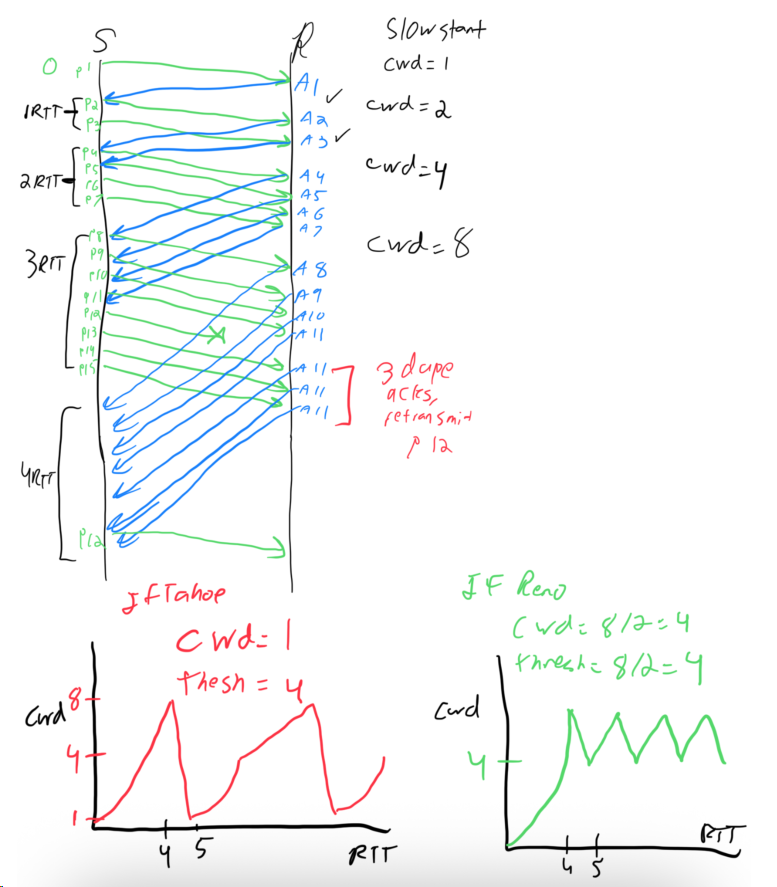 S R
Slowstart
cwd = 1
0 p1
A1
1RTT
p2
p3
A2
A3
cwd = 2
2RTT
p4
p5
p6
p7
A4
A5
A6
A7
cwd = 4
3RTT
p8
p9
p10
p11
p12
p13
p14
p15
A8
A9
A10
A11
cwd = 8
A11
A11
A11
3 dupe
acks,
retransmit
p12
4RTT
p12
If Tahoe
cwd = 1
thesh = 4
Cwd
8
4
1
4 5
RTT
If Reno
cwd = 8/2 = 4
thresh = 8/2 = 4
Cwd
4
4 5
RTT